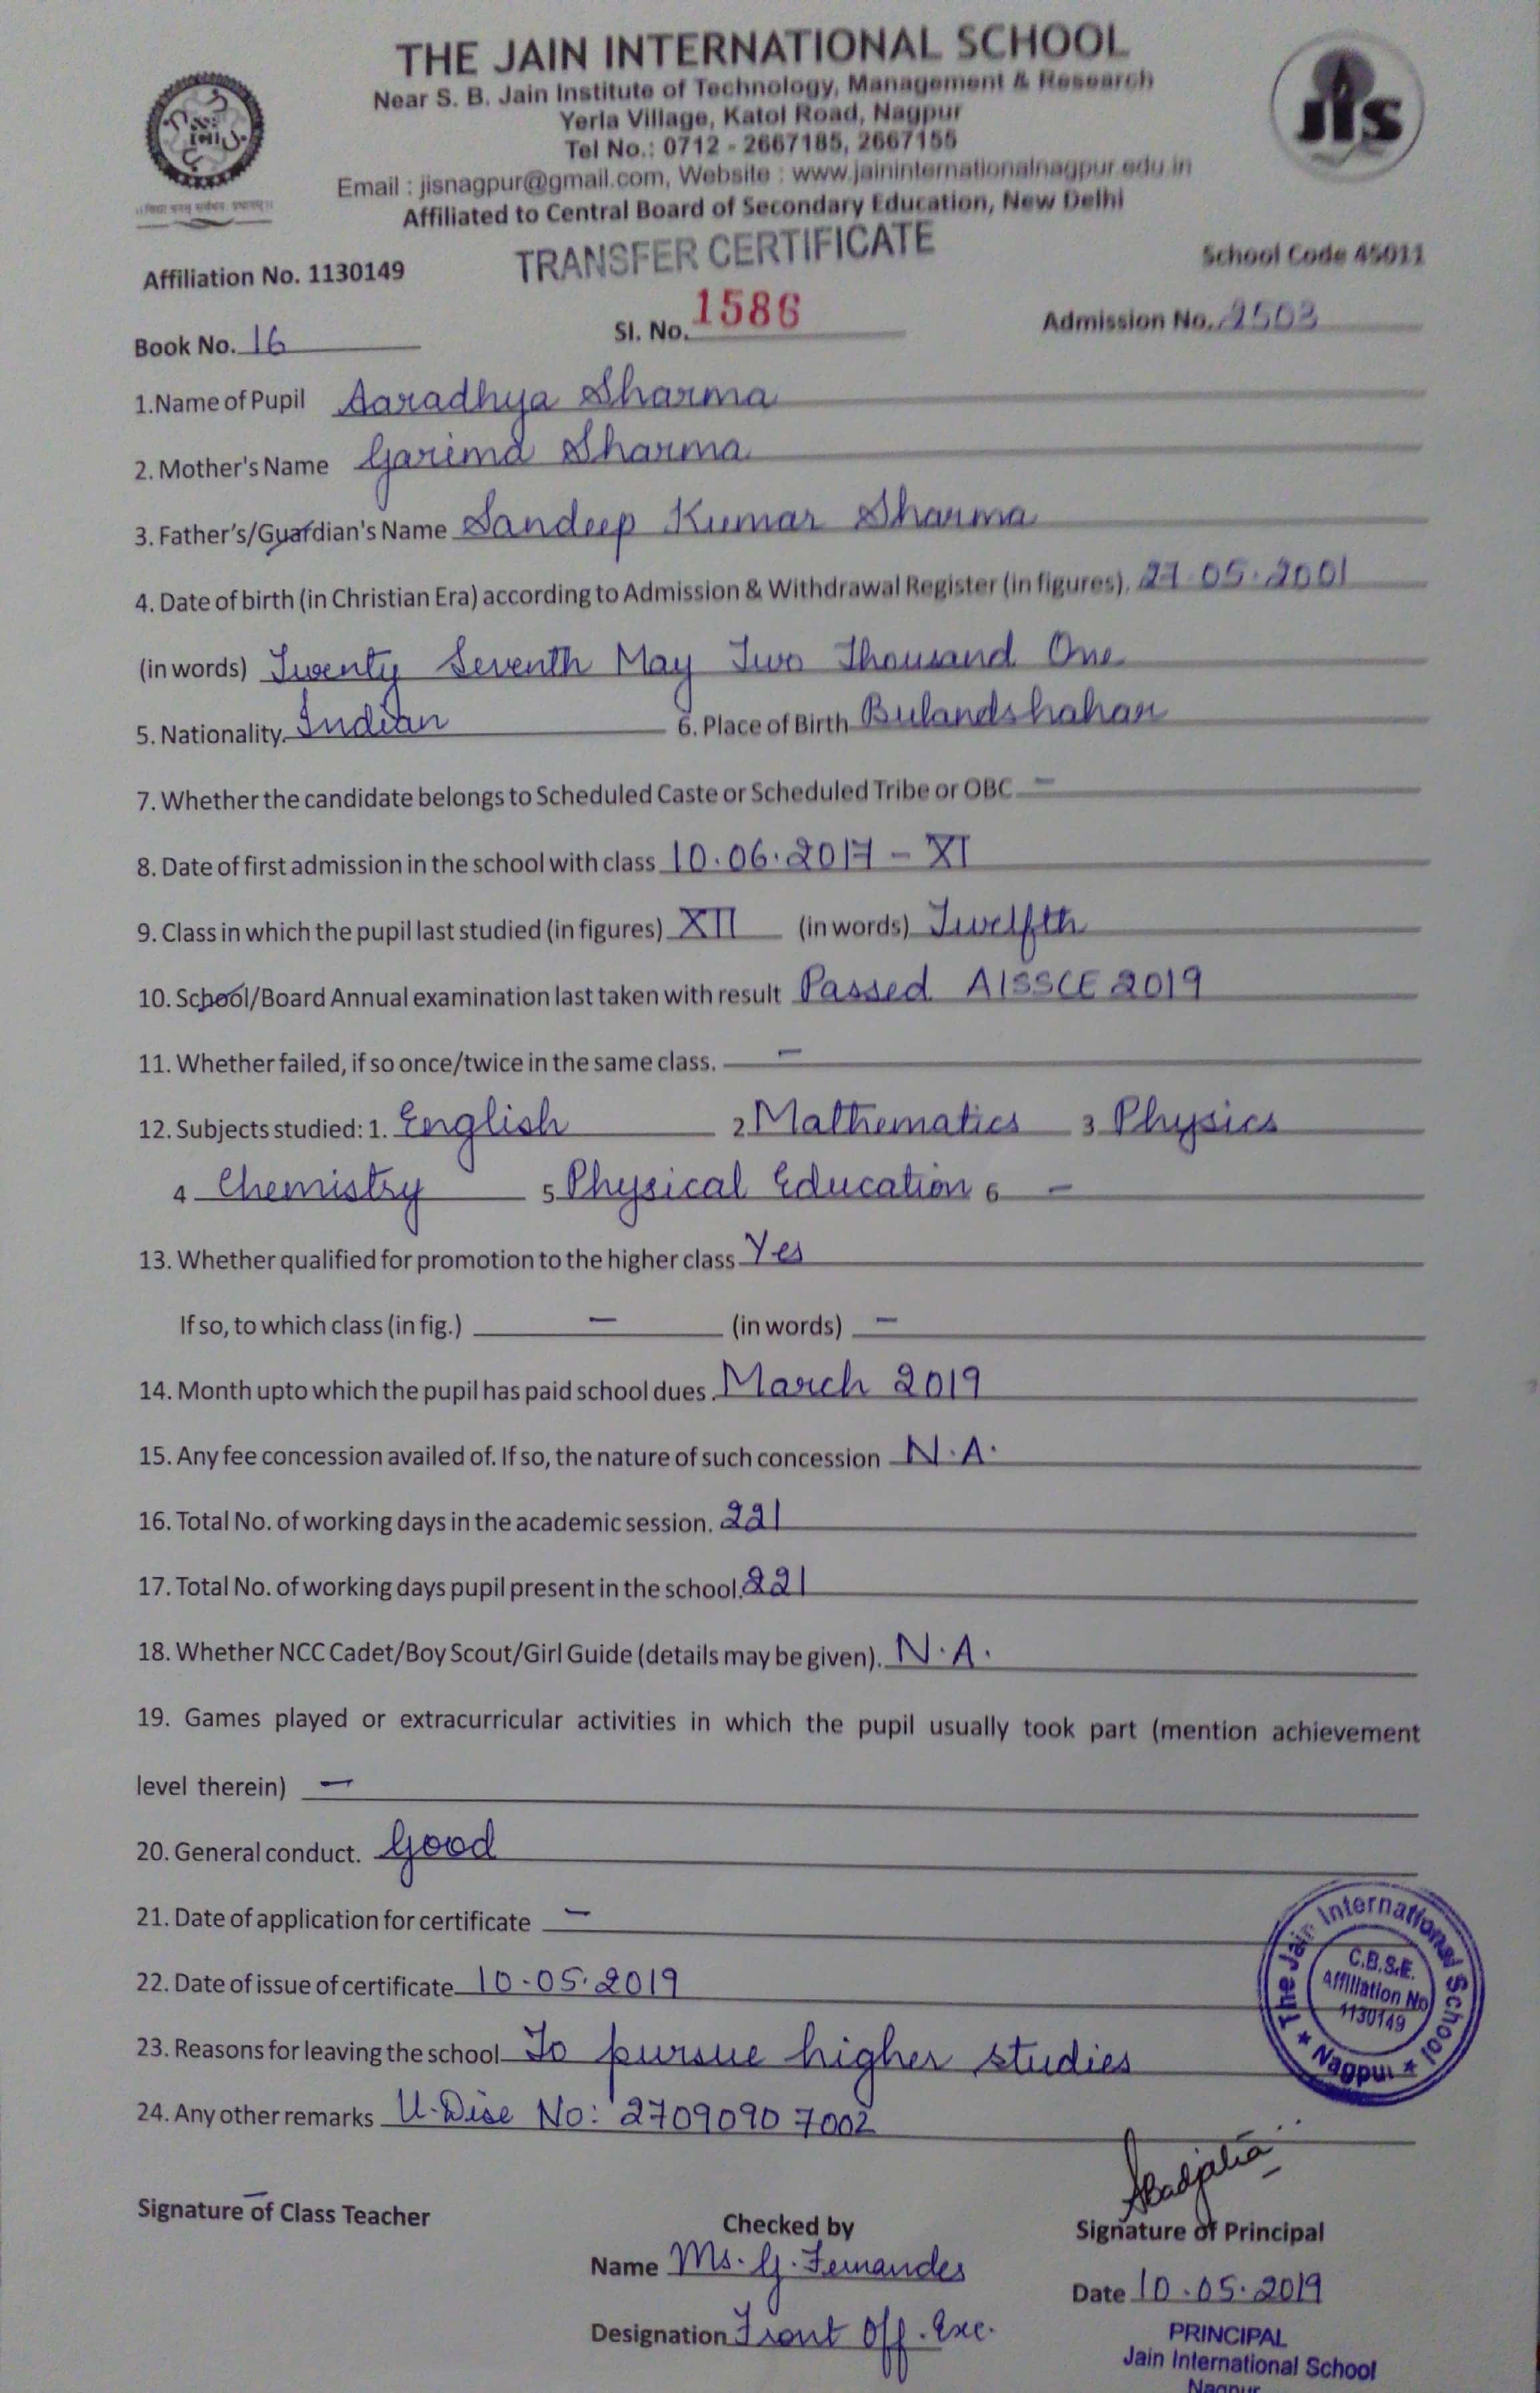 THE JAIN INTERNATIONAL SCHOOL
Near S. B. Jain Institute of Technology, Management & Research
Yerla Village, Katol Road, Nagpur
Tel No.: 0712 - 2667185, 2667155
Email : jisnagpur@gmail.com, Website : www.jaininternationalnagpur.edu.in
Affiliated to Central Board of Secondary Education, New Delhi
jis
TRANSFER CERTIFICATE
Affiliation No. 1130149 School Code 45011
Book No. 16 Sl. No. 1586 Admission No. 2503
1.Name of Pupil Aaradhya Sharma
2. Mother's Name Garima Sharma
3. Father's/Guardian's Name Sandeep Kumar Sharma
4. Date of birth (in Christian Era) according to Admission & Withdrawal Register (in figures). 27.05.2001
(in words) Twenty Seventh May Two Thousand One
5. Nationality. Indian 6. Place of Birth Bulandshahar
7. Whether the candidate belongs to Scheduled Caste or Scheduled Tribe or OBC -
8. Date of first admission in the school with class 10.06.2017 - XI
9. Class in which the pupil last studied (in figures) XII (in words) Twelfth
10. School/Board Annual examination last taken with result Passed AISSCE 2019
11. Whether failed, if so once/twice in the same class. -
12. Subjects studied: 1. English 2 Mathematics 3 Physics
4 Chemistry 5 Physical Education 6 -
13. Whether qualified for promotion to the higher class Yes
If so, to which class (in fig.) - (in words) -
14. Month upto which the pupil has paid school dues. March 2019
15. Any fee concession availed of. If so, the nature of such concession N.A.
16. Total No. of working days in the academic session. 221
17. Total No. of working days pupil present in the school. 221
18. Whether NCC Cadet/Boy Scout/Girl Guide (details may be given). N.A.
19. Games played or extracurricular activities in which the pupil usually took part (mention achievement
level therein) -
20. General conduct. Good
21. Date of application for certificate -
22. Date of issue of certificate 10.05.2019
23. Reasons for leaving the school To pursue higher studies
24. Any other remarks U-Dise No: 27090907002
The Jain International School
C.B.S.E.
Affiliation No
1130149
Nagpur
Signature of Class Teacher
Checked by
Signature of Principal
Name Ms. G. Fernandes
Date 10.05.2019
Designation Front Off. Exc.
PRINCIPAL
Jain International School
Nagpur